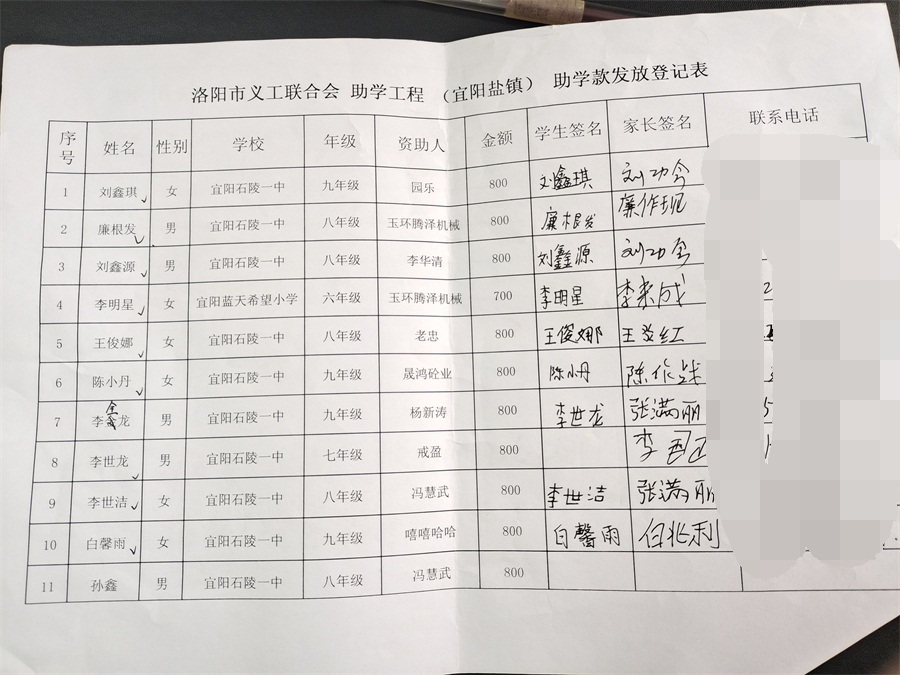 洛阳市义工联合会 助学工程 （宜阳盐镇） 助学款发放登记表
序号 姓名 性别 学校 年级 资助人 金额 学生签名 家长签名 联系电话
1 刘鑫琪 女 宜阳石陵一中 九年级 园乐 800 刘鑫琪 刘功会
2 廉根发 男 宜阳石陵一中 八年级 玉环腾泽机械 800 廉根发 廉作现
3 刘鑫源 男 宜阳石陵一中 八年级 李华清 800 刘鑫源 刘功会
4 李明星 女 宜阳蓝天希望小学 六年级 玉环腾泽机械 700 李明星 李来成
5 王俊娜 女 宜阳石陵一中 八年级 老忠 800 王俊娜 王爱红
6 陈小丹 女 宜阳石陵一中 九年级 晟鸿砼业 800 陈小丹 陈作
7 李金龙 男 宜阳石陵一中 九年级 杨新涛 800 李世龙 张满丽
8 李世龙 男 宜阳石陵一中 七年级 戒盈 800 李
9 李世洁 女 宜阳石陵一中 八年级 冯慧武 800 李世洁 张满丽
10 白馨雨 女 宜阳石陵一中 九年级 嘻嘻哈哈 800 白馨雨 白兆利
11 孙鑫 男 宜阳石陵一中 八年级 冯慧武 800